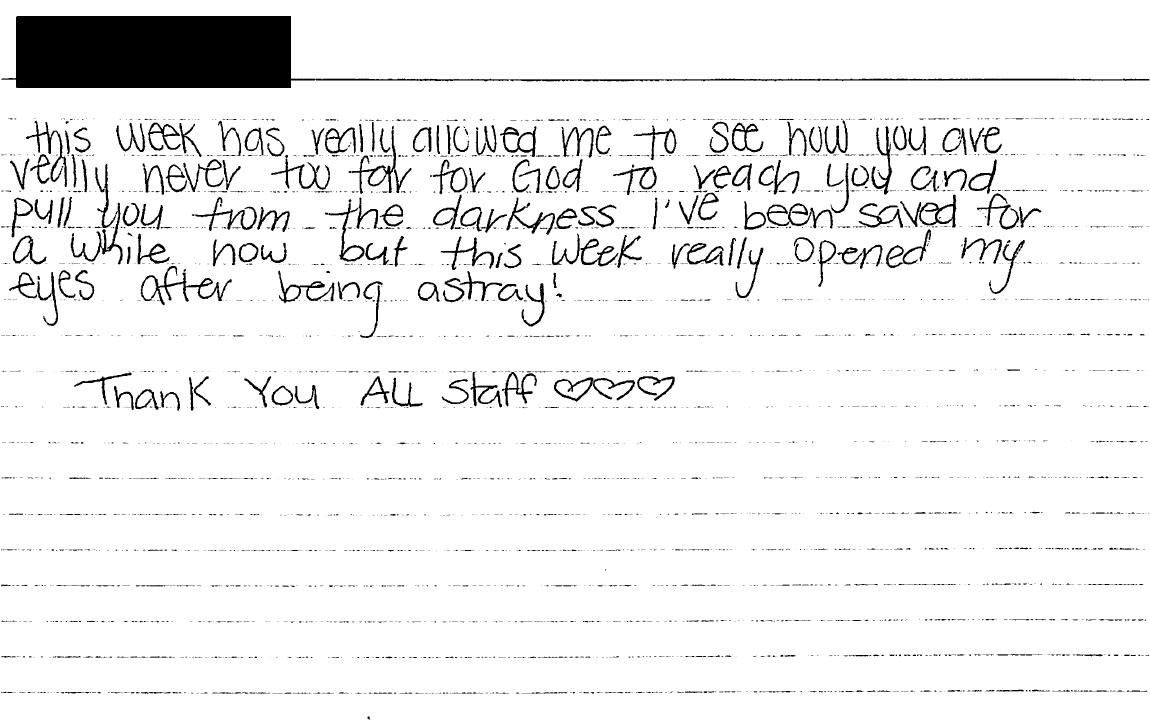 this week has really allowed me to see how you are
really never too far for God to reach you and
pull you from the darkness I've been saved for
a while now but this week really opened my
eyes after being astray!
Thank You All Staff ♡♡♡